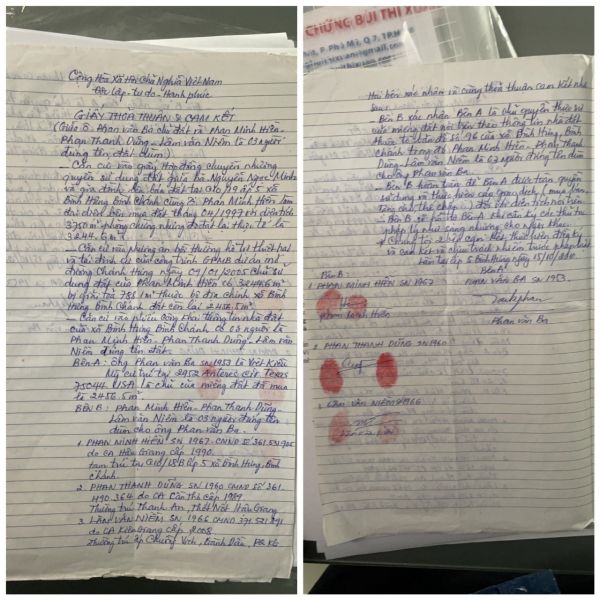 Cộng Hòa Xã Hội Chủ Nghĩa Việt Nam
Độc lập - tự do - Hạnh phúc
GIẤY THỎA THUẬN & CAM KẾT
(Giữa ô. Phan văn Ba chủ đất và Phan Minh Hiền -
Phan Thanh Dũng - Lâm văn Niềm là 03 người
đứng tên đất dùm)
- Căn cứ vào giấy Hợp đồng chuyển nhượng
quyền sử dụng đất giữa bà Nguyễn Ngọc Minh
và gia đình bán đất tại G10/ ấp 5 xã
Bình Hưng Bình Chánh cùng ô. Phan Minh Hiền làm
đại diện bên mua đất tháng 04/1997 với diện tích
3750m² nhưng đo đạt lại thực tế là
3244.6m²
- Căn cứ vào phương án bồi thường hỗ trợ thiệt hại
và tái định cư của công trình GPMB dự án mở
đường Chánh Hưng ngày 01/01/2005 chủ sử
dụng đất của Phan Minh Hiền có 3244.6m²
bị giải tỏa 788.1m² thuộc bộ địa chính xã Bình
Hưng Bình Chánh đất còn lại 2456.5m²
- Căn cứ vào phiếu cung cấp thông tin nhà đất
của xã Bình Hưng Bình Chánh có 03 người là
Phan Minh Hiền - Phan Thanh Dũng - Lâm văn
Niềm đứng tên đất.
Bên A: Ông Phan văn Ba SN 1953 là Việt Kiều
Mỹ cư trú tại 2952 Anteres Cir. Texas
75044. USA là chủ của miếng đất đã mua
là 2456.5m²
BÊN B: Phan Minh Hiền - Phan Thanh Dũng -
Lâm văn Niềm là 03 người đứng tên
dùm cho ông Phan văn Ba.
1. PHAN MINH HIỀN SN 1967. CMND SỐ 361.531.905
do CA Hậu Giang cấp 1990.
tạm trú tại G10/18B ấp 5 xã Bình Hưng, Bình
Chánh
2. PHAN THANH DŨNG SN 1960 CMND SỐ 361.
490.364 do CA Cần Thơ cấp 1989.
Thường trú Thạnh An, Thốt Nốt Hậu Giang
3. LÂM VĂN NIỀM SN 1966 CMND 371.531.291
do CA Kiên Giang cấp 2008.
Thường trú ấp
CHỨNG BÙI THỊ XUÂN
P. Phú Mỹ, Q 7, TP.
@gmail.com
Hai bên xác nhận và cùng thỏa thuận cam kết như
sau:
- Bên B xác nhận Bên A là chủ quyền thực sự
của miếng đất nói trên theo thông tin nhà đất
thuộc tờ bản đồ số 96 của xã Bình Hưng, Bình
Chánh trong đó Phan Minh Hiền - Phan Thanh
Dũng - Lâm văn Niềm là 03 người đứng tên dùm
cho ông Phan văn Ba.
- Bên B hoàn toàn để Bên A được toàn quyền
sử dụng và thực hiện các giao dịch (mua, bán
tặng cho, thế chấp...) đối với diện tích nói trên
- Bên B sẽ hỗ trợ Bên A khi cần ký các thủ tục
pháp lý như sang nhượng cho người khác.
* Chúng tôi 2 bên cam kết, thỏa thuận, đồng ký
và cam kết và chịu trách nhiệm trước pháp luật
Làm tại ấp 5 Bình Hưng ngày 15/10/2010
Bên B:
Bên A:
1. PHAN MINH HIỀN SN 1967
PHAN VĂN BA SN 1953.
Phan Minh Hiền
Phan văn Ba
2. PHAN THANH DŨNG SN 1960
3. LÂM VĂN NIỀM SN 1966